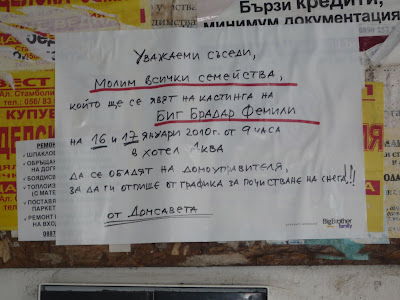 Бързи кредити,
минимум документация
УВАЖАЕМИ СЪСЕДИ,
МОЛИМ ВСИЧКИ СЕМЕЙСТВА,
КОИТО ЩЕ СЕ ЯВЯТ НА КАСТИНГА НА
БИГ БРАДАР ФЕМИЛИ
НА 16 И 17 ЯНУАРИ 2010г. ОТ 9 ЧАСА
В ХОТЕЛ АКВА
ДА СЕ ОБАДЯТ НА ДОМОУПРАВИТЕЛЯ,
ЗА ДА ГИ ОТПИШЕ ОТ ГРАФИКА ЗА ПОЧИСТВАНЕ НА СНЕГА!!!
ОТ ДОМСАВЕТА
BigBrother
family
Ал. Стамболи
тел.: 056/83
КУПУВ
РЕМОНТ
НА ВХОД